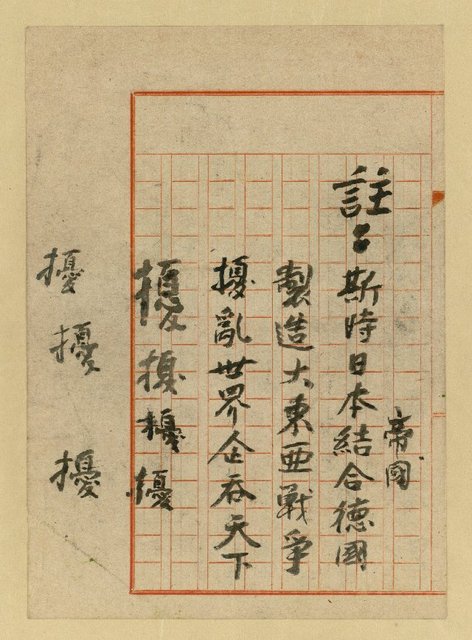 帝國
註：斯時日本結合德國
製造大東亞戰爭
擾亂世界企吞天下
擾擾擾擾
擾擾擾